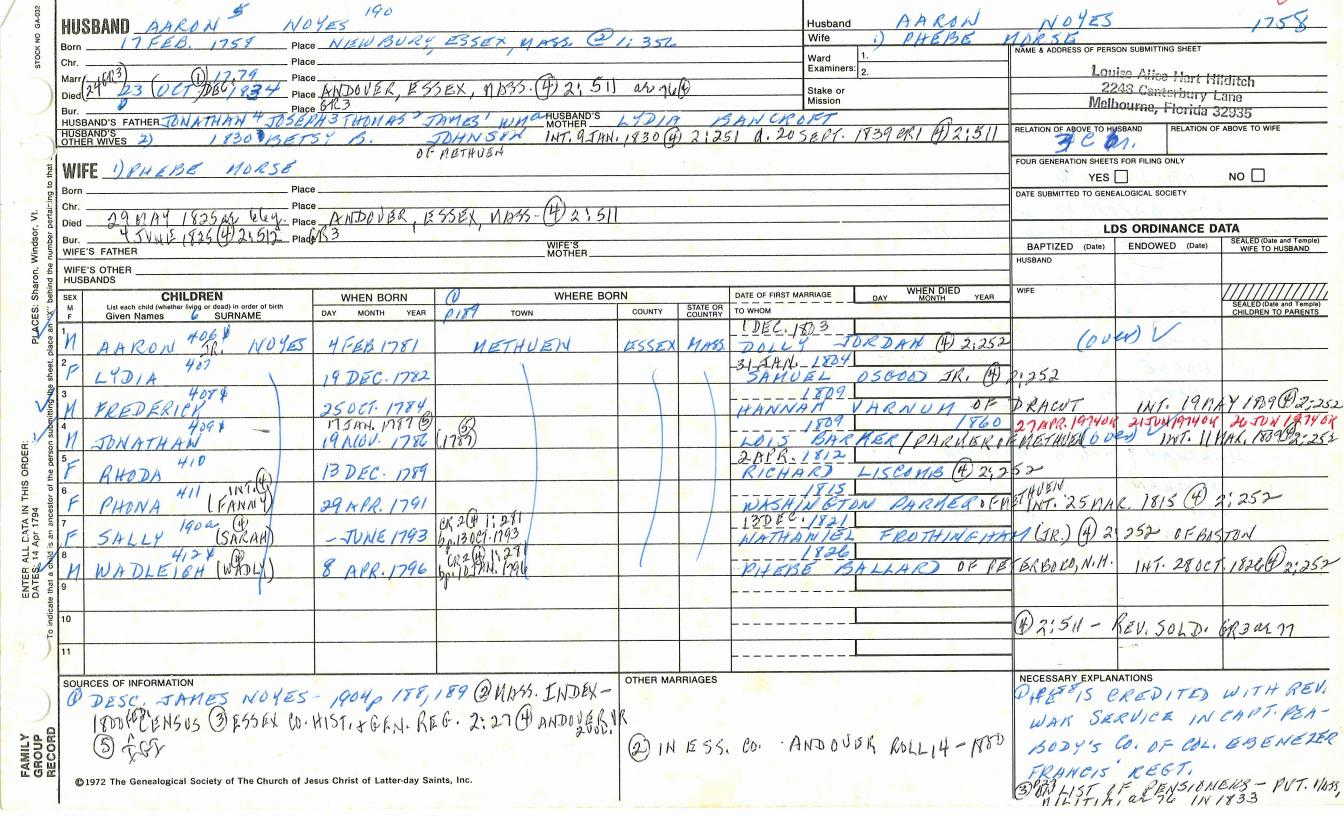 STOCK NO GA-032
HUSBAND AARON 5 NOYES 190
Born 17 FEB. 1758 Place NEWBURY, ESSEX, MASS. ② 1:352
Chr. Place
Marr. ① 1779 Place
Died (24 GR3) 23 (OCT) DEC. 1834 Place ANDOVER, ESSEX, MASS. ④ 2:511 ae 76
Bur. Place GR3
HUSBAND'S FATHER JONATHAN 4 JOSEPH 3 THOMAS 2 JAMES 1 WM a HUSBAND'S MOTHER LYDIA BANCROFT
HUSBAND'S OTHER WIVES 2) 1830 BETSY B. JOHNSON INT. 9 JAN. 1830 ④ 2:251 d. 20 SEPT. 1839 GR1 ④ 2:511
OF METHUEN
WIFE 1) PHEBE MORSE
Born Place
Chr. Place
Died 29 MAY 1825 ae 66y Place ANDOVER, ESSEX, MASS. ④ 2:511
Bur. 4 JUNE 1825 ④ 2:512 Place GR3
WIFE'S FATHER WIFE'S MOTHER
WIFE'S OTHER HUSBANDS
Husband AARON NOYES 1758
Wife 1) PHEBE MORSE
Ward Examiners: 1. 2.
Stake or Mission
NAME & ADDRESS OF PERSON SUBMITTING SHEET
Louise Alice Hart Hilditch
2243 Canterbury Lane
Melbourne, Florida 32935
RELATION OF ABOVE TO HUSBAND RELATION OF ABOVE TO WIFE
FOUR GENERATION SHEETS FOR FILING ONLY
YES NO
DATE SUBMITTED TO GENEALOGICAL SOCIETY
LDS ORDINANCE DATA
BAPTIZED (Date) ENDOWED (Date) SEALED (Date and Temple) WIFE TO HUSBAND
HUSBAND
WIFE
SEALED (Date and Temple) CHILDREN TO PARENTS
SEX M F CHILDREN WHEN BORN ① WHERE BORN DATE OF FIRST MARRIAGE WHEN DIED
List each child (whether living or dead) in order of birth
Given Names 6 SURNAME DAY MONTH YEAR p189 TOWN COUNTY STATE OR COUNTRY TO WHOM DAY MONTH YEAR
1 M AARON JR. 406 NOYES 4 FEB 1781 METHUEN ESSEX MASS 1 DEC. 1803 DOLLY JORDAN ④ 2:252 (over) ✓
2 F LYDIA 407 19 DEC. 1782 31 JAN. 1804 SAMUEL OSGOOD JR. ④ 2:252
3 M FREDERICK 408 25 OCT. 1784 1809 HANNAH VARNUM OF DRACUT INT. 19 MAY 1809 ④ 2:252
4 M JONATHAN 409 17 JAN. 1787 ③ 19 NOV. 1786 ③ (1787) 1809 1860 LOIS BARKER/PARKER OF METHUEN (over) ✓ INT. 11 MAR. 1809 ④ 2:252
27 APR. 1974 OK 21 JUN 1974 OK 26 JUN 1974 OK
5 F RHODA 410 13 DEC. 1789 2 APR. 1812 RICHARD LISCOMB ④ 2:252
6 F PHONA 411 INT. ④ (FANNY) 29 APR. 1791 1815 WASHINGTON PARKER OF METHUEN INT. 25 MAR. 1815 ④ 2:252
7 F SALLY 190a ④ (SARAH) – JUNE 1793 CR 2 ④ 1:281 bp. 13 OCT. 1793 13 DEC. 1821 NATHANIEL FROTHINGHAM (JR.) ④ 2:252 OF BOSTON
8 M WADLEIGH 412 ④ (WADLY) 8 APR. 1796 CR2 ④ 1:281 1826 PHEBE BALLARD OF PETERBORO, N.H. INT. 28 OCT. 1826 ④ 2:252
9
10 ④ 2:511 – REV. SOLD. GR3 ae 77
11
SOURCES OF INFORMATION
① DESC. JAMES NOYES - 1904 p 188, 189 ② MASS. INDEX -
1800 CENSUS ③ ESSEX CO. HIST. & GEN. REG. 2:27 ④ ANDOVER VR
⑤
OTHER MARRIAGES
② IN ESS. CO. ANDOVER ROLL 14 - 1800
NECESSARY EXPLANATIONS
① p188 IS CREDITED WITH REV.
WAR SERVICE IN CAPT. PEA-
BODY'S CO. OF COL. EBENEZER
FRANCIS' REGT.
③ LIST OF PENSIONERS - PVT. MASS.
MILITIA, ae 76 IN 1833
©1972 The Genealogical Society of The Church of Jesus Christ of Latter-day Saints, Inc.
FAMILY GROUP RECORD
ENTER ALL DATA IN THIS ORDER:
DATES: 14 Apr 1794
PLACES: Sharon, Windsor, Vt.
To indicate that a child is an ancestor of the person submitting the sheet, place an "X" behind the number pertaining to that